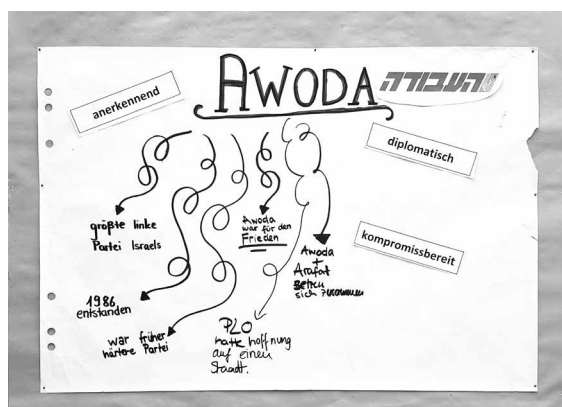 AWODA
העבודה
anerkennend
diplomatisch
kompromissbereit
größte linke
Partei Israels
1986
entstanden
war früher
härtere Partei
Awoda
war für den
Frieden
PLO
hatte hoffnung
auf einen
Staadt.
Awoda
+
Arafat
setzen
sich zusammen